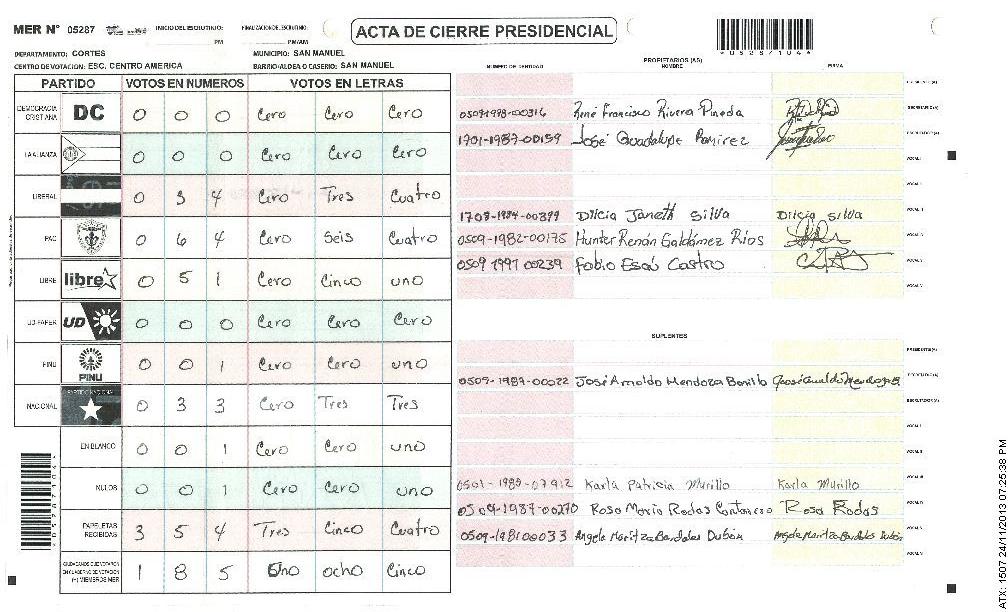 MER N° 05287 INICIO DEL ESCRUTINIO: PM FINALIZACION DEL ESCRUTINIO: PM/AM
ACTA DE CIERRE PRESIDENCIAL
DEPARTAMENTO: CORTES MUNICIPIO: SAN MANUEL
CENTRO DE VOTACION: ESC. CENTRO AMERICA BARRIO/ALDEA O CASERIO: SAN MANUEL
PARTIDO VOTOS EN NUMEROS VOTOS EN LETRAS
DEMOCRACIA CRISTIANA DC 0 0 0 Cero Cero Cero
LA ALIANZA 0 0 0 Cero Cero Cero
LIBERAL 0 3 4 Cero Tres Cuatro
PAC 0 6 4 Cero Seis Cuatro
LIBRE libre 0 5 1 Cero Cinco uno
UD-FAPER UD 0 0 0 Cero Cero Cero
PINU PINU 0 0 1 Cero Cero uno
NACIONAL PARTIDO NACIONAL 0 3 3 Cero Tres Tres
EN BLANCO 0 0 1 Cero Cero uno
NULOS 0 0 1 Cero Cero uno
PAPELETAS RECIBIDAS 3 5 4 Tres Cinco Cuatro
CIUDADANOS QUE VOTARON EN CUADERNO DE VOTACION (+) MIEMBROS MER 1 8 5 Uno ocho Cinco
*05287104*
PROPIETARIOS (AS)
NUMERO DE IDENTIDAD NOMBRE FIRMA
PRESIDENTE (A)
0509-1998-00316 René Francisco Rivera Pineda SECRETARIO (A)
1701-1987-00159 José Guadalupe Ramirez ESCRUTADOR (A)
VOCAL I
VOCAL II
1708-1984-00399 Dilcia Janeth Silva Dilcia Silva VOCAL III
0509-1982-00175 Hunter Renán Galdámez Ríos VOCAL IV
0509 1991 00239 Fabio Esaú Castro VOCAL V
SUPLENTES
PRESIDENTE (A)
0509-1989-00022 José Arnoldo Mendoza Bonilla SECRETARIO (A)
ESCRUTADOR (A)
VOCAL I
VOCAL II
0501-1989-07912 Karla Patricia Murillo Karla Murillo VOCAL III
0509-1987-00270 Rosa Maria Rodas Rosa Rodas VOCAL IV
0509-1981 00033 Angela Maritza Bardales Dubón Angela Maritza Bardales Dubón VOCAL V
ATX: 1507 24/11/2013 07:25:38 PM